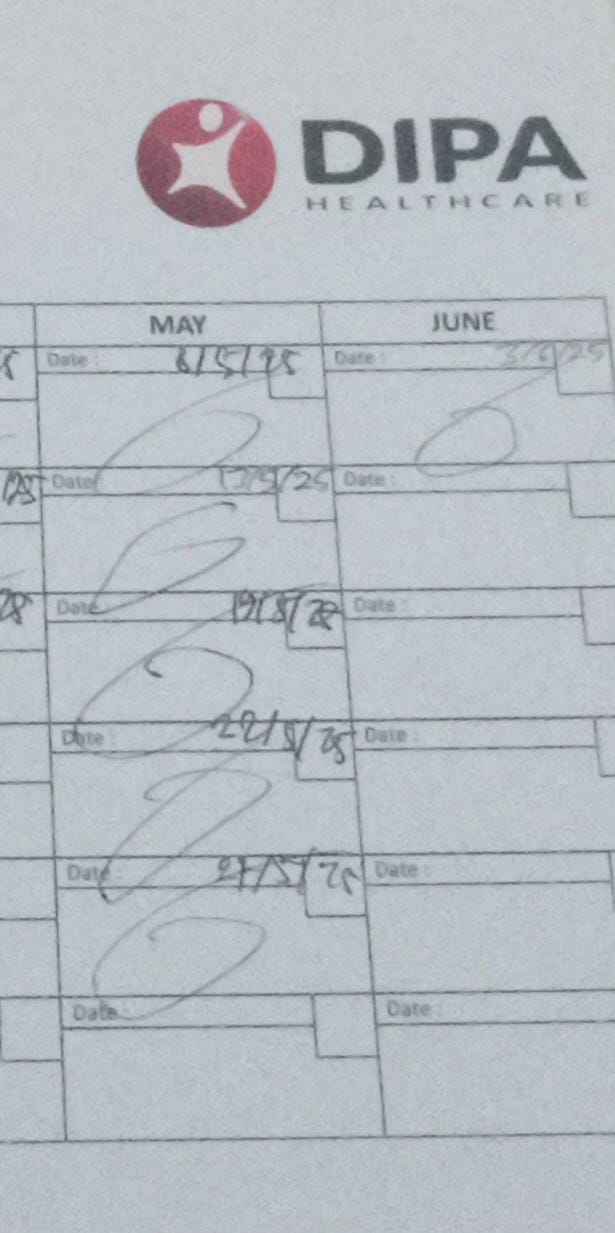 DIPA
HEALTHCARE
MAY JUNE
Date : 6/5/25 Date : 3/6/25
Date 25 Date :
Date 19/5/25 Date :
Date : 22/5/25 Date :
Date : 27/5/25 Date :
Date : Date :